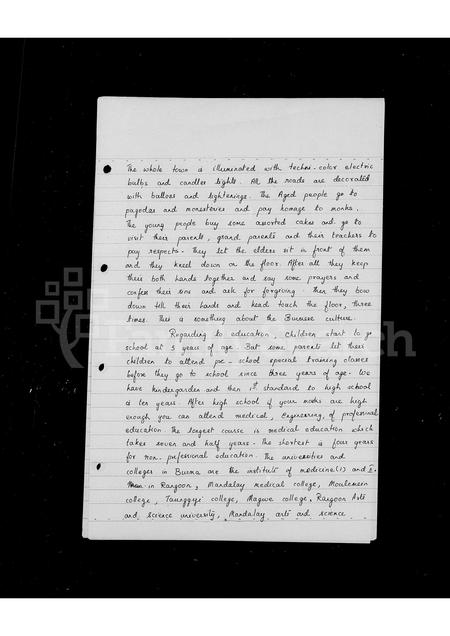 The whole town is illuminated with techni-color electric
bulbs and candles lights. All the roads are decorated
with balloos and lightenings. The Aged people go to
pagodas and monasteries and pay homage to monks.
The young people buy some assorted cakes and go to
visit their parents, grand parents and their teachers to
pay respects. They let the elders sit in front of them
and they kneel down on the floor. After all they keep
their both hands together and say some prayers and
confess their sins and ask for forgiving. Then they bow
down till their hands and head touch the floor, three
times. This is something about the Burmese culture.
Regarding to education, children start to go
school at 5 years of age. But some parents let their
children to attend pre-school special training classes
before they go to school since three years of age. We
have kindergarden and then 1st standard to high school
is ten years. After high school if your marks are high
enough you can attend medical, Engineering, of professional
education. The longest course is medical education which
takes seven and half years. The shortest is four years
for non-professional education. The universities and
colleges in Burma are the institute of medicine (1) and 2.
in Rangoon, Mandalay medical college, Moulemein
college, Taunggyi college, Magwe college, Rangoon Arts
and Science university, Mandalay arts and science